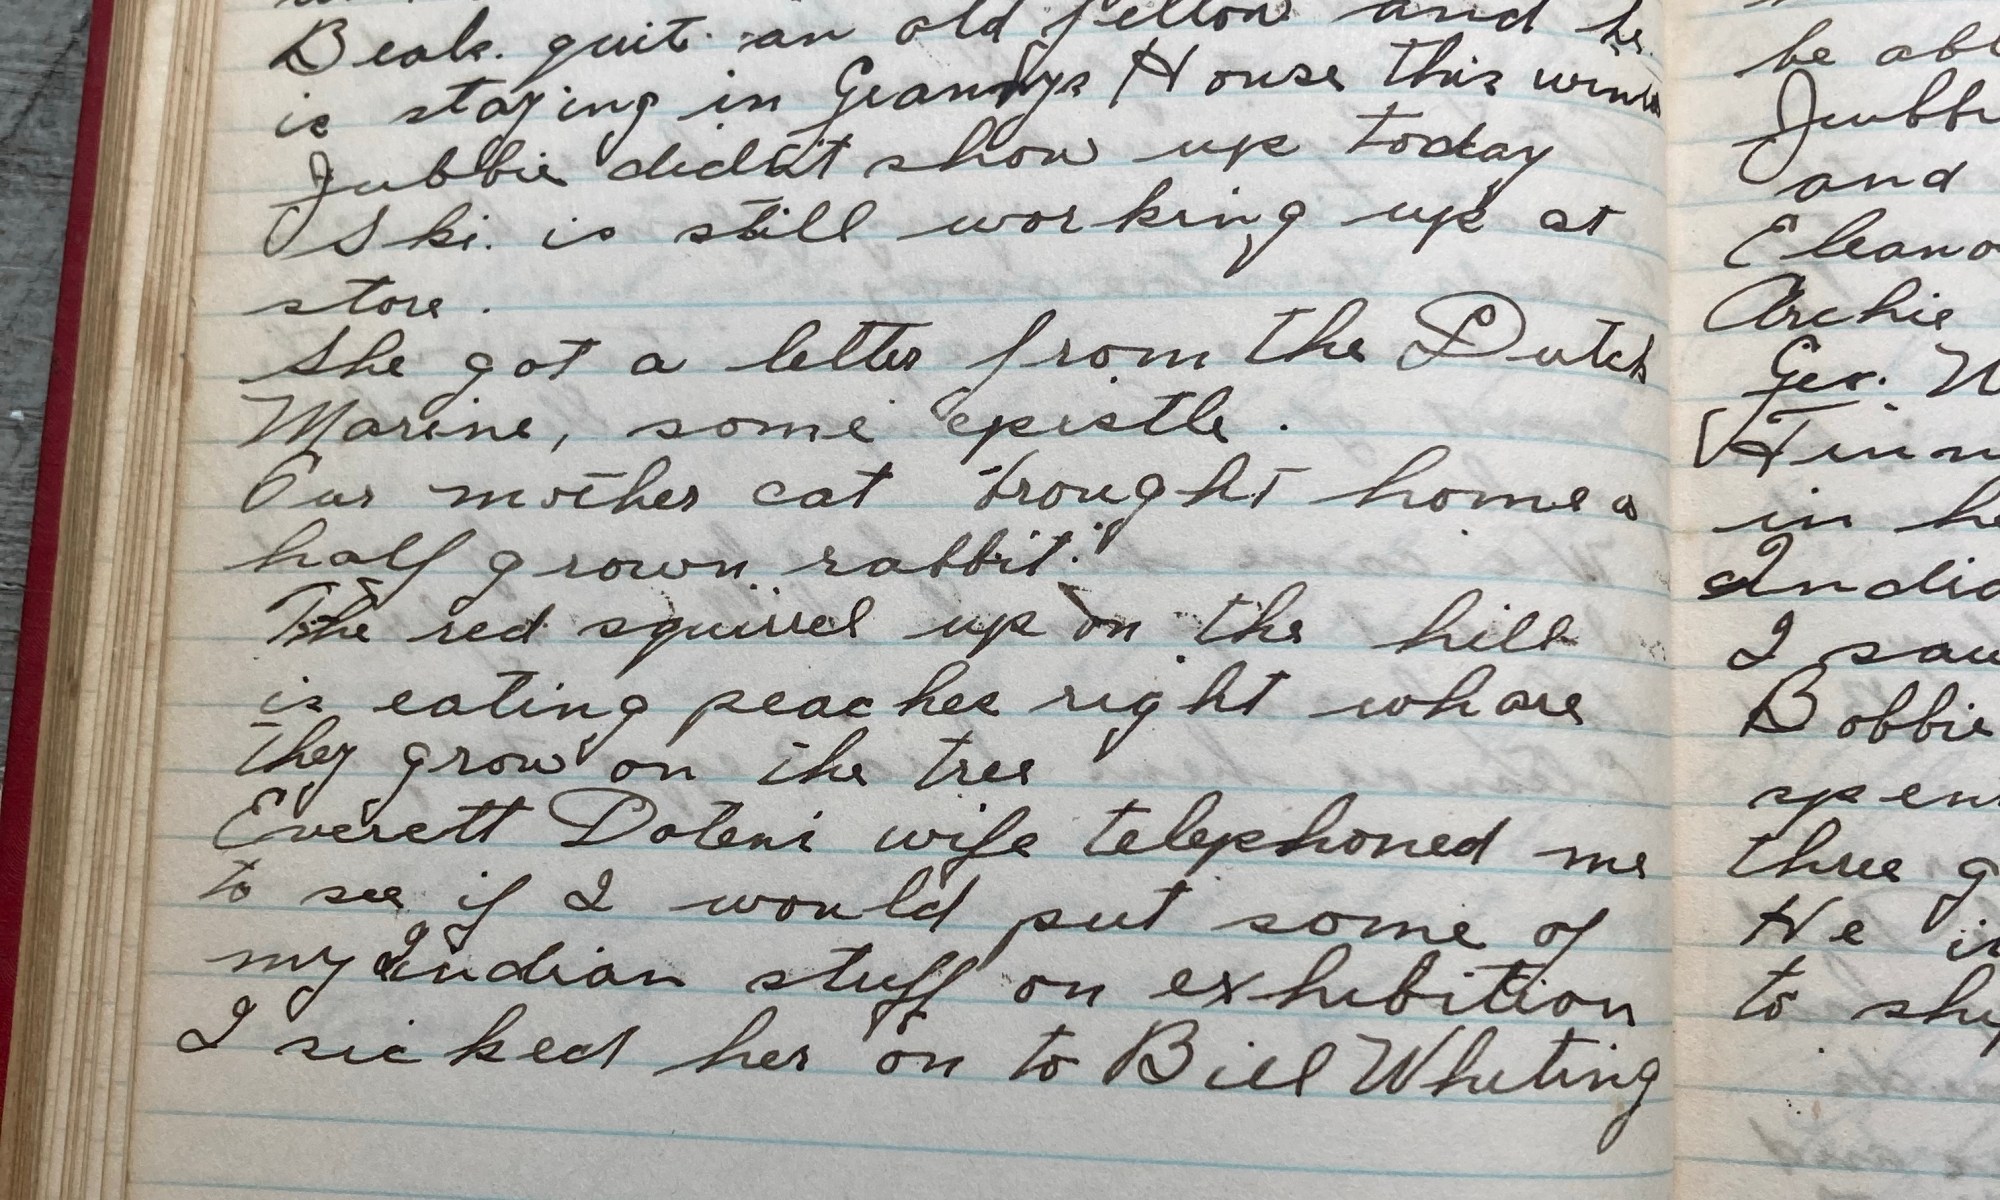 Beals. quit an old fellow and he
is staying in Grannys House this
Jubbie didn't show up today
Ski. is still working up at
store.
She got a letter from the Dutch
Marine, some epistle.
Our mother cat brought home a
half grown rabbit.
The red squirrel up on the hill
is eating peaches right whare
they grow on the tree
Everett wife telephoned me
to see if I would put some of
my Indian stuff on exhibition
I sicked her on to Bill Whiting
be abl
Jubbi
and
Eleano
Archie
Geo. W
in he
India
I saw
Bobbie
spen
three g
He i
to sh